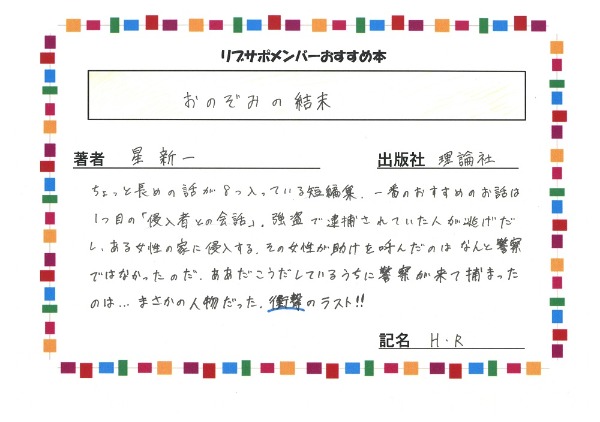 リブサポメンバーおすすめ本
おのぞみの結末
著者 星新一 出版社 理論社
ちょっと長めの話が8つ入っている短編集。一番のおすすめのお話は
1つ目の「侵入者との会話」。強盗で逮捕されていた人が逃げだ
し、ある女性の家に侵入する。その女性が助けを呼んだのはなんと警察
ではなかったのだ。ああだこうだしているうちに警察が来て捕まった
のは…まさかの人物だった。衝撃のラスト!!
記名 H・R